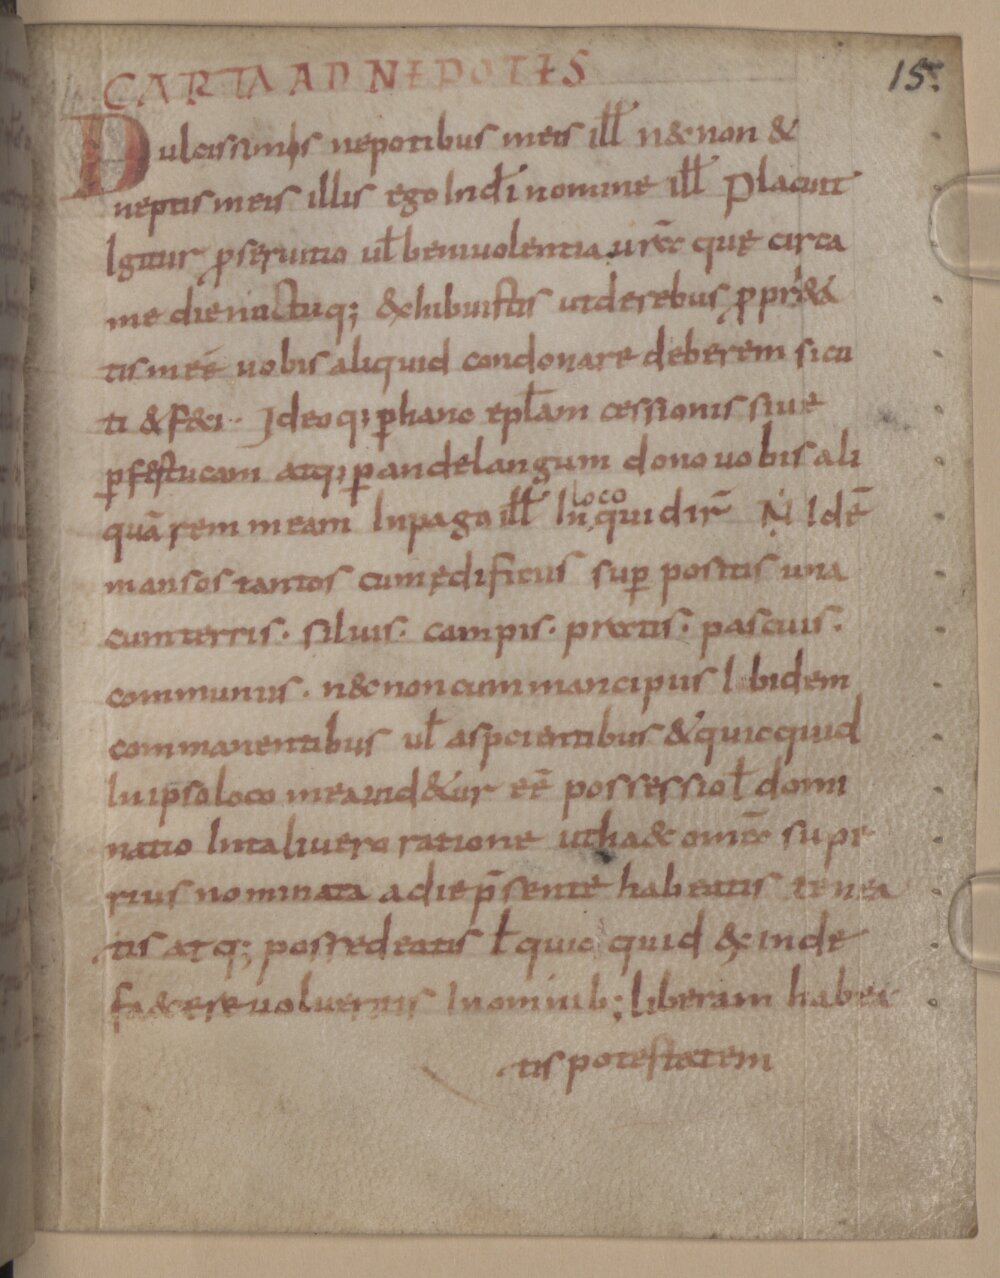 CARTA AD NEPOTES
15.
Dulcissimis nepotibus meis ill̄ n&non &
neptis meis illis ego Indī nomine ill̄ Placuit
Igitur ꝓseruitio ul̄ beniuolentia urā que circa
me die nuctuq; &hibuistis ut de rebus ꝓpri&a
tis meę uobis aliquid condonare deberem sicu
ti & feci. Ideoq; ꝑ hano epl̄am cessionis siue
ꝑ festucam atq; ꝑ andelangum dono uobis ali
quā rem meam Inpago ill̄ In loco qui dir̄ .N. Idē
mansos tantos cum ędificiis suꝑ positis una
cum terris. siluis. campis. pratis. pascuis.
communiis. n&non cum mancipiis Ibidem
commanentibus ul̄ aspicientibus & quicquid
In ipso loco mea uid&ur eē possessio l̄ domi
natio Intali uero ratione ut ha& omīa supe
rius nominata a die p̄sente habeatis tenea
tis atq; possedeatis l̄ quic quid &inde
fa&ere uolueritis In omnib; liberam habea
tis potestatem